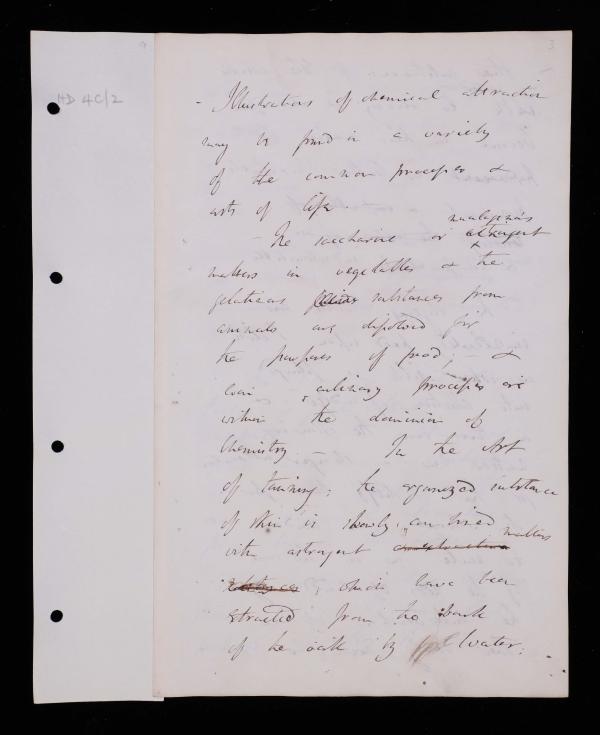 3
HD 4C/2
- Illustrations of chemical attraction
may be found in a variety
of the common processes &
arts of life.
- The saccharine or mucilaginous astringent
matters in vegetables & the
gelatinous substances from
animals are dissolved for
the purposes of food; - &
even culinary processes are
within the dominion of
Chemistry. - In the Art
of tanning; the organized substance
of skin is slowly combined
with astringent matters
substances, which have been
extracted from the bark
of the oak by Water.